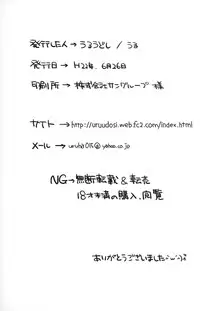 発行した人→うるうどし / うる
発行日→H22年、6月26日
印刷所→株式会社サングループ様
サイト→http://uruudosi.web.fc2.com/index.html
メール→uruha015@yahoo.co.jp
NG→無断転載&転売
18才未満の購入、閲覧
ありがとうございました